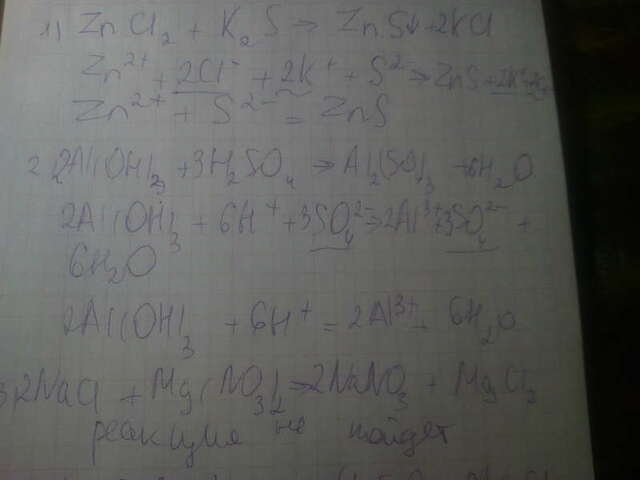 1) ZnCl₂ + K₂S ⇒ ZnS↓ + 2KCl
Zn²⁺ + 2Cl⁻ + 2K⁺ + S²⁻ ⇒ ZnS + 2K⁺
Zn²⁺ + S²⁻ = ZnS
2. 2Al(OH)₃ + 3H₂SO₄ ⇒ Al₂(SO₄)₃ + 6H₂O
2Al(OH)₃ + 6H⁺ + 3SO₄²⁻ ⇒ 2Al³⁺ + 3SO₄²⁻ +
6H₂O
2Al(OH)₃ + 6H⁺ = 2Al³⁺ + 6H₂O
3. 2NaCl + Mg(NO₃)₂ ⇒ 2NaNO₃ + MgCl₂
реакция не пойдет